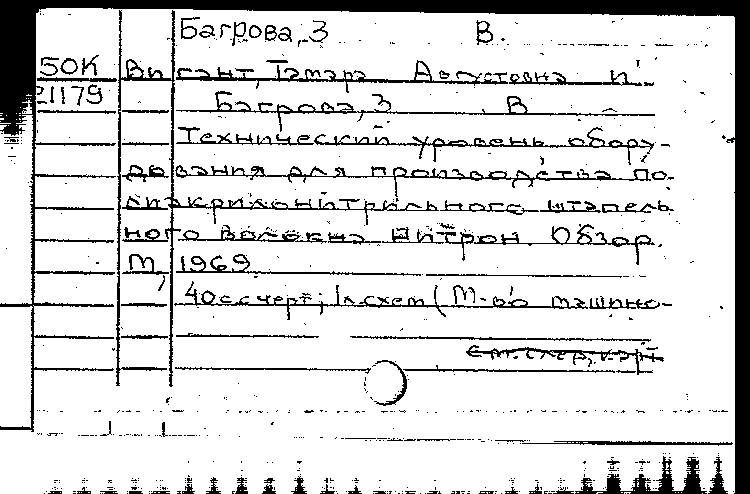 Багрова, З В.
50К Ви гант, Тамара Августовна и
21179 Багрова, З В
Технический уровень обору-
дования для производства по-
лиакрилонитрильного штапель
ного волокна Нитрон. Обзор.
М, 1969
40с с черт; 1л. схем (М-во машино-
см. след. карт